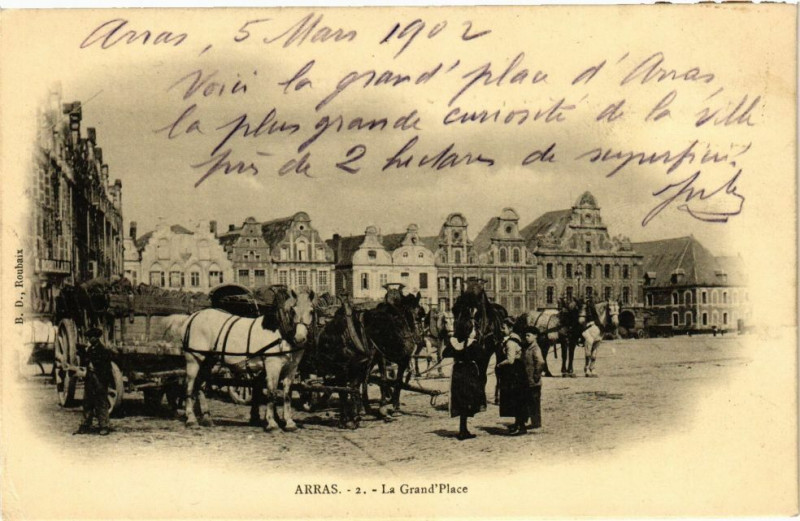 Arras, 5 Mars 1902
Voici la grand' place d'Arras
la plus grande curiosité de la Ville
près de 2 hectares de superficie.
B. D., Roubaix
ARRAS. - 2. - La Grand'Place